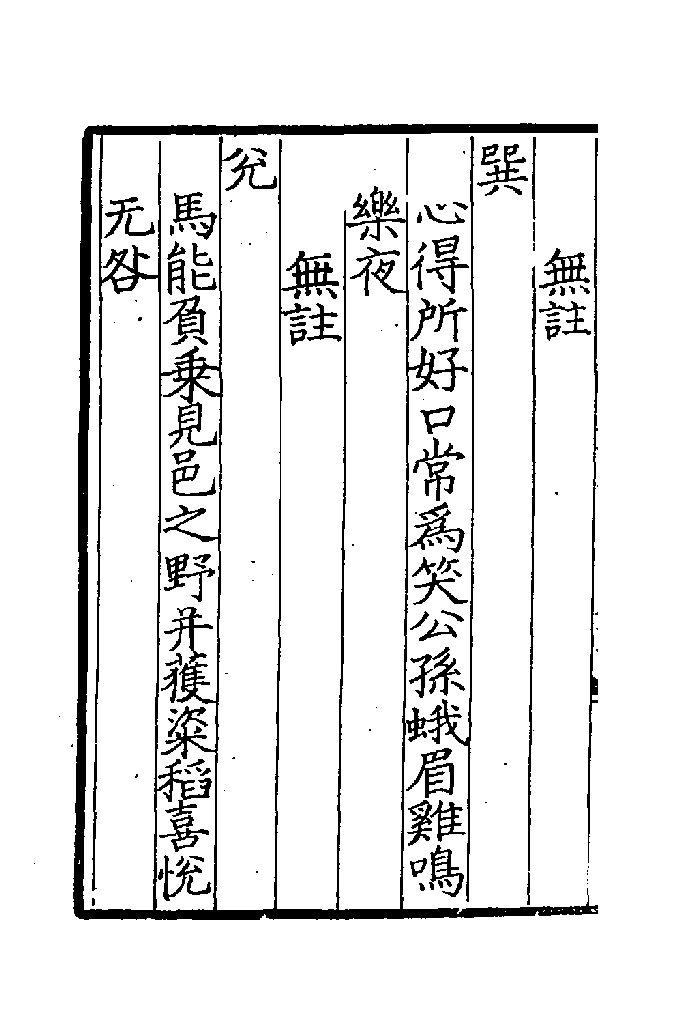 無註
巽
心得所好口常為笑公孫蛾眉雞鳴
樂夜
無註
兊
馬能負乗見邑之野并䕶粢稻喜悅
无咎